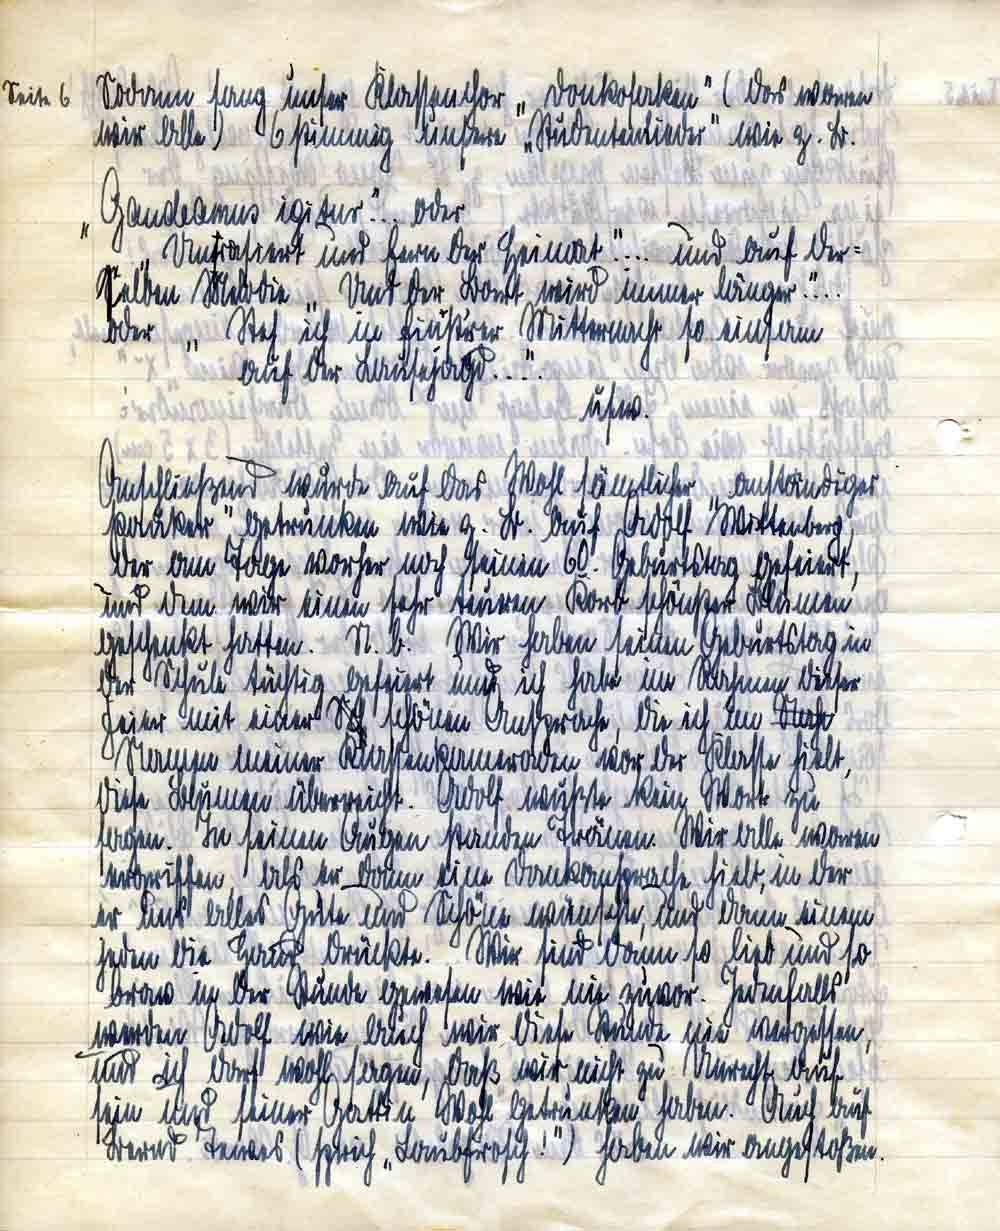 Seite 6 Sodann sang unser Klassenchor „Donkosaken" (das waren
wir alle) 6 stimmig unsere „Studentenlieder" wie z. B.
„Gaudeamus igitur"... oder
„Unrasiert und fern der Heimat".... und auf der=
selben Melodie „Und der Bart wird immer länger"....
oder „Steh ich in finst'rer Mitternacht so einsam
auf der Lausejagd....".
usw.
Anschließend wurde auf das Wohl sämtlicher „anständiger
Pauker" getrunken wie z. B. auf Adolf Wittenberg,
der am Tage vorher noch seinen 60. Geburtstag gefeiert,
und dem wir einen sehr teueren Korb schönster Blumen
geschenkt hatten. N. b. Wir haben seinen Geburtstag in
der Schule tüchtig gefeiert und ich habe im Rahmen dieser
Feier mit einer schönen Ansprache, die ich im
Namen meiner Klassenkameraden vor der Klasse hielt,
diese Blumen überreicht. Adolf wußte kein Wort zu
sagen. In seinen Augen standen Tränen. Wir alle waren
ergriffen als er dann eine Dankansprache hielt, in der
er uns alles Gute und Schöne wünschte, und dann einem
jeden die Hand drückte. Wir sind dann so lieb und so
brav in der Stunde gewesen wie nie zuvor. Jedenfalls
werden Adolf wie auch wir diese Stunde nie vergessen,
und ich darf wohl sagen, daß wir nicht zu Unrecht auf
sein und seiner Gattin Wohl getrunken haben. Auch auf
Bernd Tewes (sprich „Laubfrosch!") haben wir angestoßen.